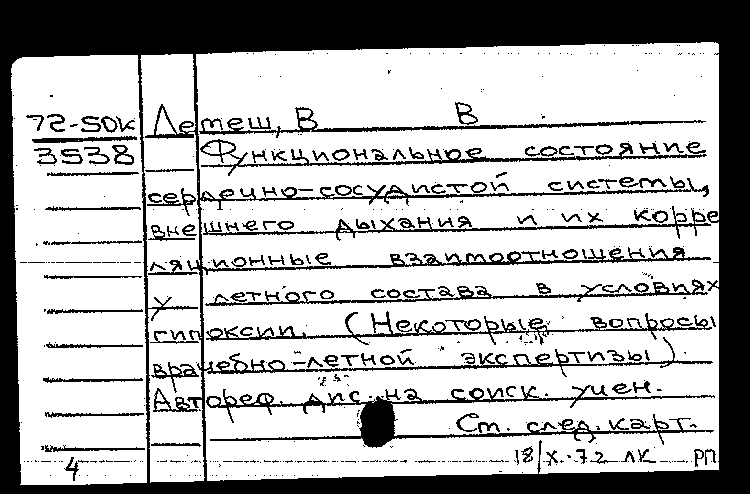 72-5DK Летеш, В В
3538 Функциональное состояние
сердечно-сосудистой системы,
внешнего дыхания и их корре
ляционные взаимоотношения
у летного состава в условиях
гипоксии. (Некоторые вопросы
врачебно-летной экспертизы).
Автореф. дис. на соиск. учен.
Ст. след. карт.
4 18/X-72 ЛК РП